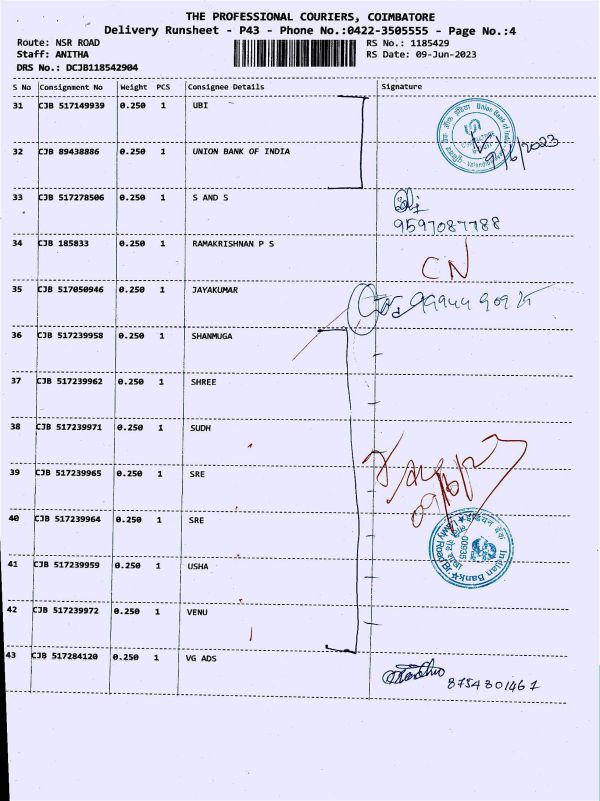 THE PROFESSIONAL COURIERS, COIMBATORE
Delivery Runsheet - P43 - Phone No.:0422-3505555 - Page No.:4
Route: NSR ROAD
RS No.: 1185429
Staff: ANITHA
RS Date: 09-Jun-2023
DRS No.: DCJB118542904
S No Consignment No Weight PCS Consignee Details Signature
31 CJB 517149939 0.250 1 UBI
Union Bank of India
32 CJB 89438886 0.250 1 UNION BANK OF INDIA
9/6/2023
33 CJB 517278506 0.250 1 S AND S
9597087788
34 CJB 185833 0.250 1 RAMAKRISHNAN P S
CN
35 CJB 517050946 1 0.250 JAYAKUMAR
36 CJB 517239958 0.250 1 SHANMUGA
37 CJB 517239962 0.250 1 SHREE
38 CJB 517239971 0.250 1 SUDH
39 CJB 517239965 0.250 1 SRE
40 CJB 517239964 0.250 1 SRE
Indian Bank
41 CJB 517239959 0.250 1 USHA
42 CJB 517239972 0.250 1 VENU
43 CJB 517284120 0.250 1 VG ADS
8754801461